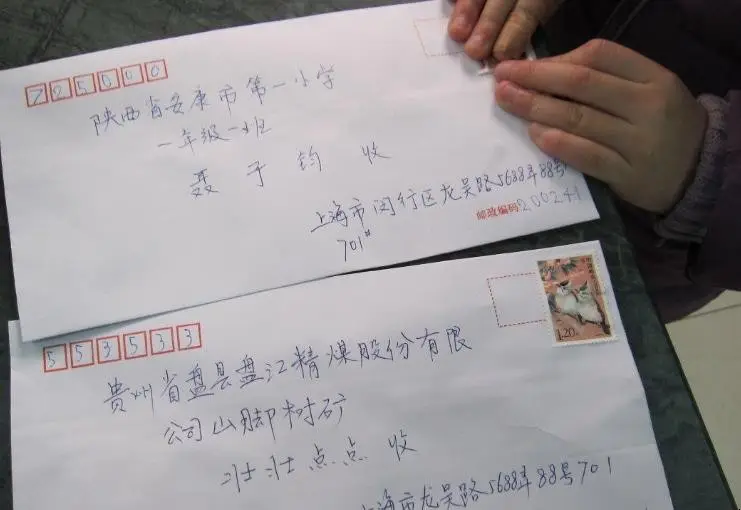 725000
陕西省安康市第一小学
一年级一班
聂于钧 收
上海市闵行区龙吴路5688弄88号
701#
邮政编码 200241
1.20元
553533
贵州省盘县盘江精煤股份有限
公司山脚树矿
壮壮点点 收
上海市龙吴路5688弄88号701